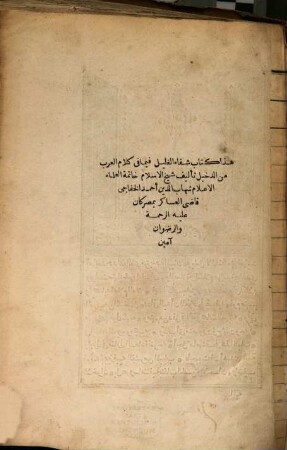 هذا كتاب شفاء الغليل فيما فى كلام العرب
من الدخيل تأليف شيخ الاسلام خاتمة العلماء
الاعلام شهاب الدين أحمد الخفاجى
قاضى العساكر بمصر كان
عليه الرحمة
والرضوان
آمين